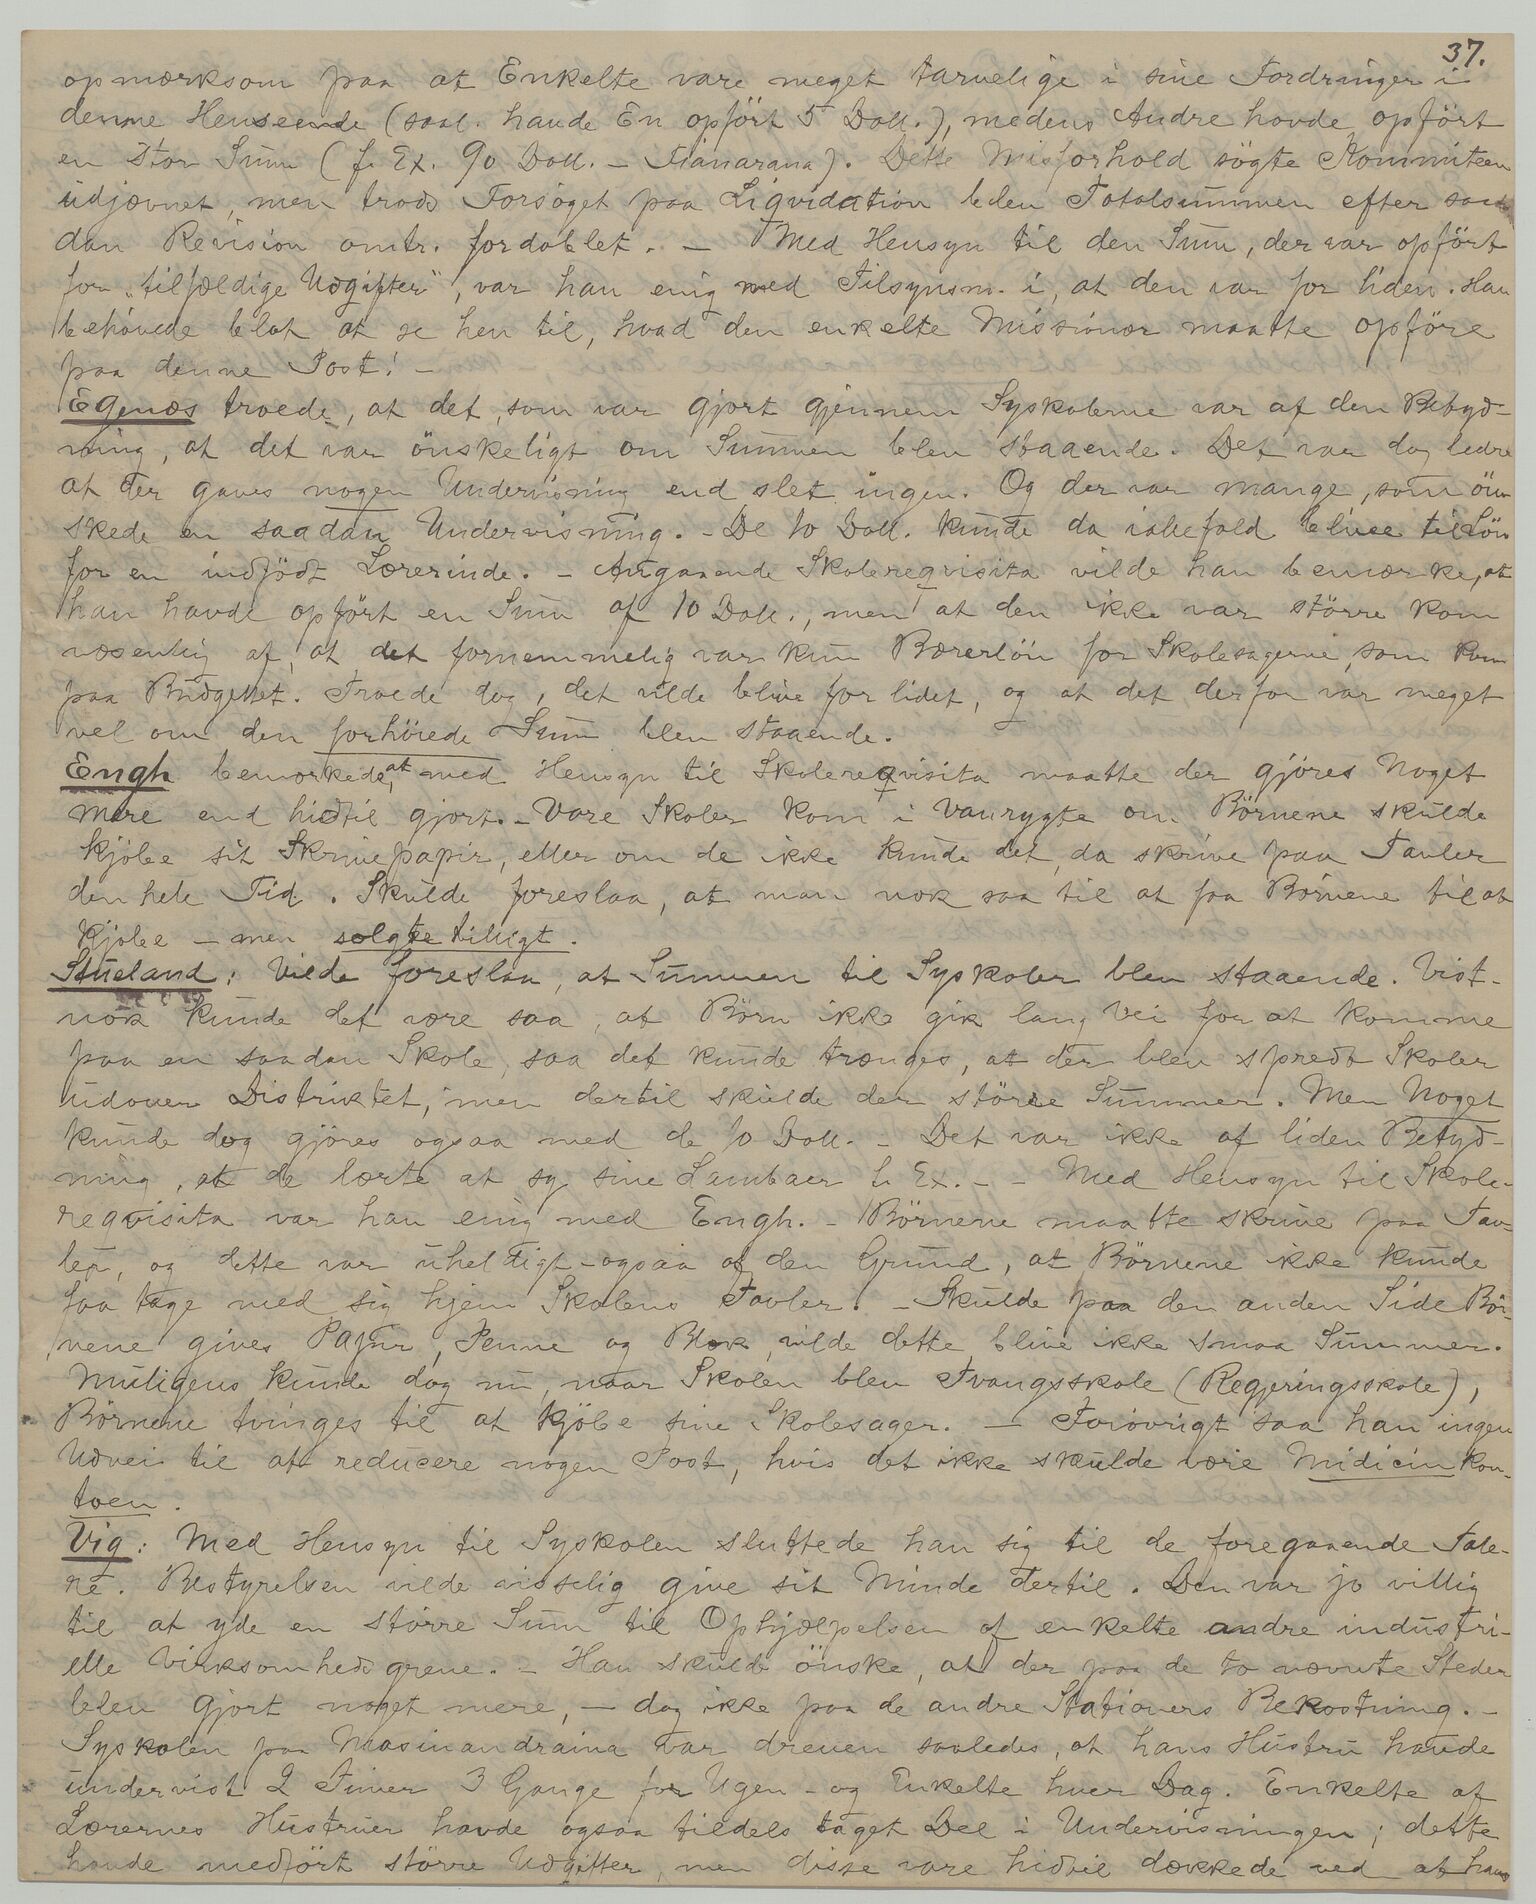 37.
opmærksom paa at Enkelte vare meget tarvelige i sine Fordringer i
denne Henseende (saal. havde En opført 5 Doll.), medens Andre havde opført
en stor Sum (f. Ex. 90 Doll. – Fianarana). Dette Misforhold søgte Kommiteen
udjævnet, men trods Forsøget paa Liqvidation blev Totalsummen efter saa-
dan Revision omtr. fordoblet. – Med Hensyn til den Sum, der var opført
for "tilfældige Udgifter", var han enig med Tilsynsm. i, at den var for liden. Han
behøvede blot at se hen til, hvad den enkelte Missionær maatte opføre
paa denne Post! –
Egenæs troede, at det, som var gjort gjennem Syskolerne var af den Betyd-
ning, at det var ønskeligt om Summen blev staaende. Det var dog bedre
at der gaves nogen Undervisning end slet ingen. Og der var mange, som øn-
skede en saadan Undervisning. – De 10 Doll. kunde da ialfefald blive til Løn
for en indfødt Lærerinde. – Angaaende Skolereqvisita vilde han bemærke, at
han havde opført en Sum af 10 Doll., men at den ikke var større kom
væsentlig af, at det fornemmelig var kun Bærerløn for Skolesagerne, som kom
paa Budgettet. Troede dog, det vilde blive for lidet, og at det derfor var meget
vel om den forhøiede Sum blev staaende.
Engh bemærkede, at med Hensyn til Skolereqvisita maatte der gjøres Noget
mere end hidtil gjort. – Vore Skoler kom i Vanrygte om Børnene skulde
kjøbe sit Skrivepapir, eller om de ikke kunde det, da skrive paa Tavler
den hele Tid. Skulde foreslaa, at man nok saa til at faa Børnene til at
kjøbe – men solgte billigt.
Stueland: Vilde foreslaa, at Summen til Syskoler blev staaende. Vist-
nok kunde det være saa, at Børn ikke gik lang Vei for at komme
paa en saadan Skole, saa det kunde trænges, at der blev spredt Skoler
udover Distriktet, men dertil skulde der større Summer. Men Noget
kunde dog gjøres ogsaa med de 10 Doll. – Det var ikke af liden Betyd-
ning, at de lærte at sy sine Lambaer f. Ex. – – Med Hensyn til Skole-
reqvisita var han enig med Engh. – Børnene maatte skrive paa Tav-
ler, og dette var uheldigt – ogsaa af den Grund, at Børnene ikke kunde
faa tage med sig hjem Skolens Tavler. – Skulde paa den anden Side Bør-
nene gives Papir, Penne og Blæk, vilde dette blive ikke smaa Summer.
Muligens kunde dog nu, naar Skolen blev Tvangsskole (Regjeringsskole),
Børnene tvinges til at kjøbe sine Skolesager. – Forøvrigt saa han ingen
Udvei til at reducere nogen Post, hvis det ikke skulde være Midicinkon-
toen.
Vig: Med Hensyn til Syskolen sluttede han sig til de foregaaende Tale-
re. Bestyrelsen vilde visselig give sit Minde dertil. Den var jo villig
til at yde en større Sum til Ophjælpelsen af enkelte andre industri-
elle Virksomhedsgrene. – Han skulde ønske, at der paa de to nævnte Steder
blev gjort noget mere, – dog ikke paa de andre Stationers Bekostning. –
Syskolen paa Masinandraina var dreven saaledes, at hans Hustru havde
undervist 2 Timer 3 Gange for Ugen – og Enkelte hver Dag. Enkelte af
Lærernes Hustruer havde ogsaa tildels taget Del i Undervisningen; dette
havde medført større Udgifter, men disse vare hidtil dækkede ved at hans